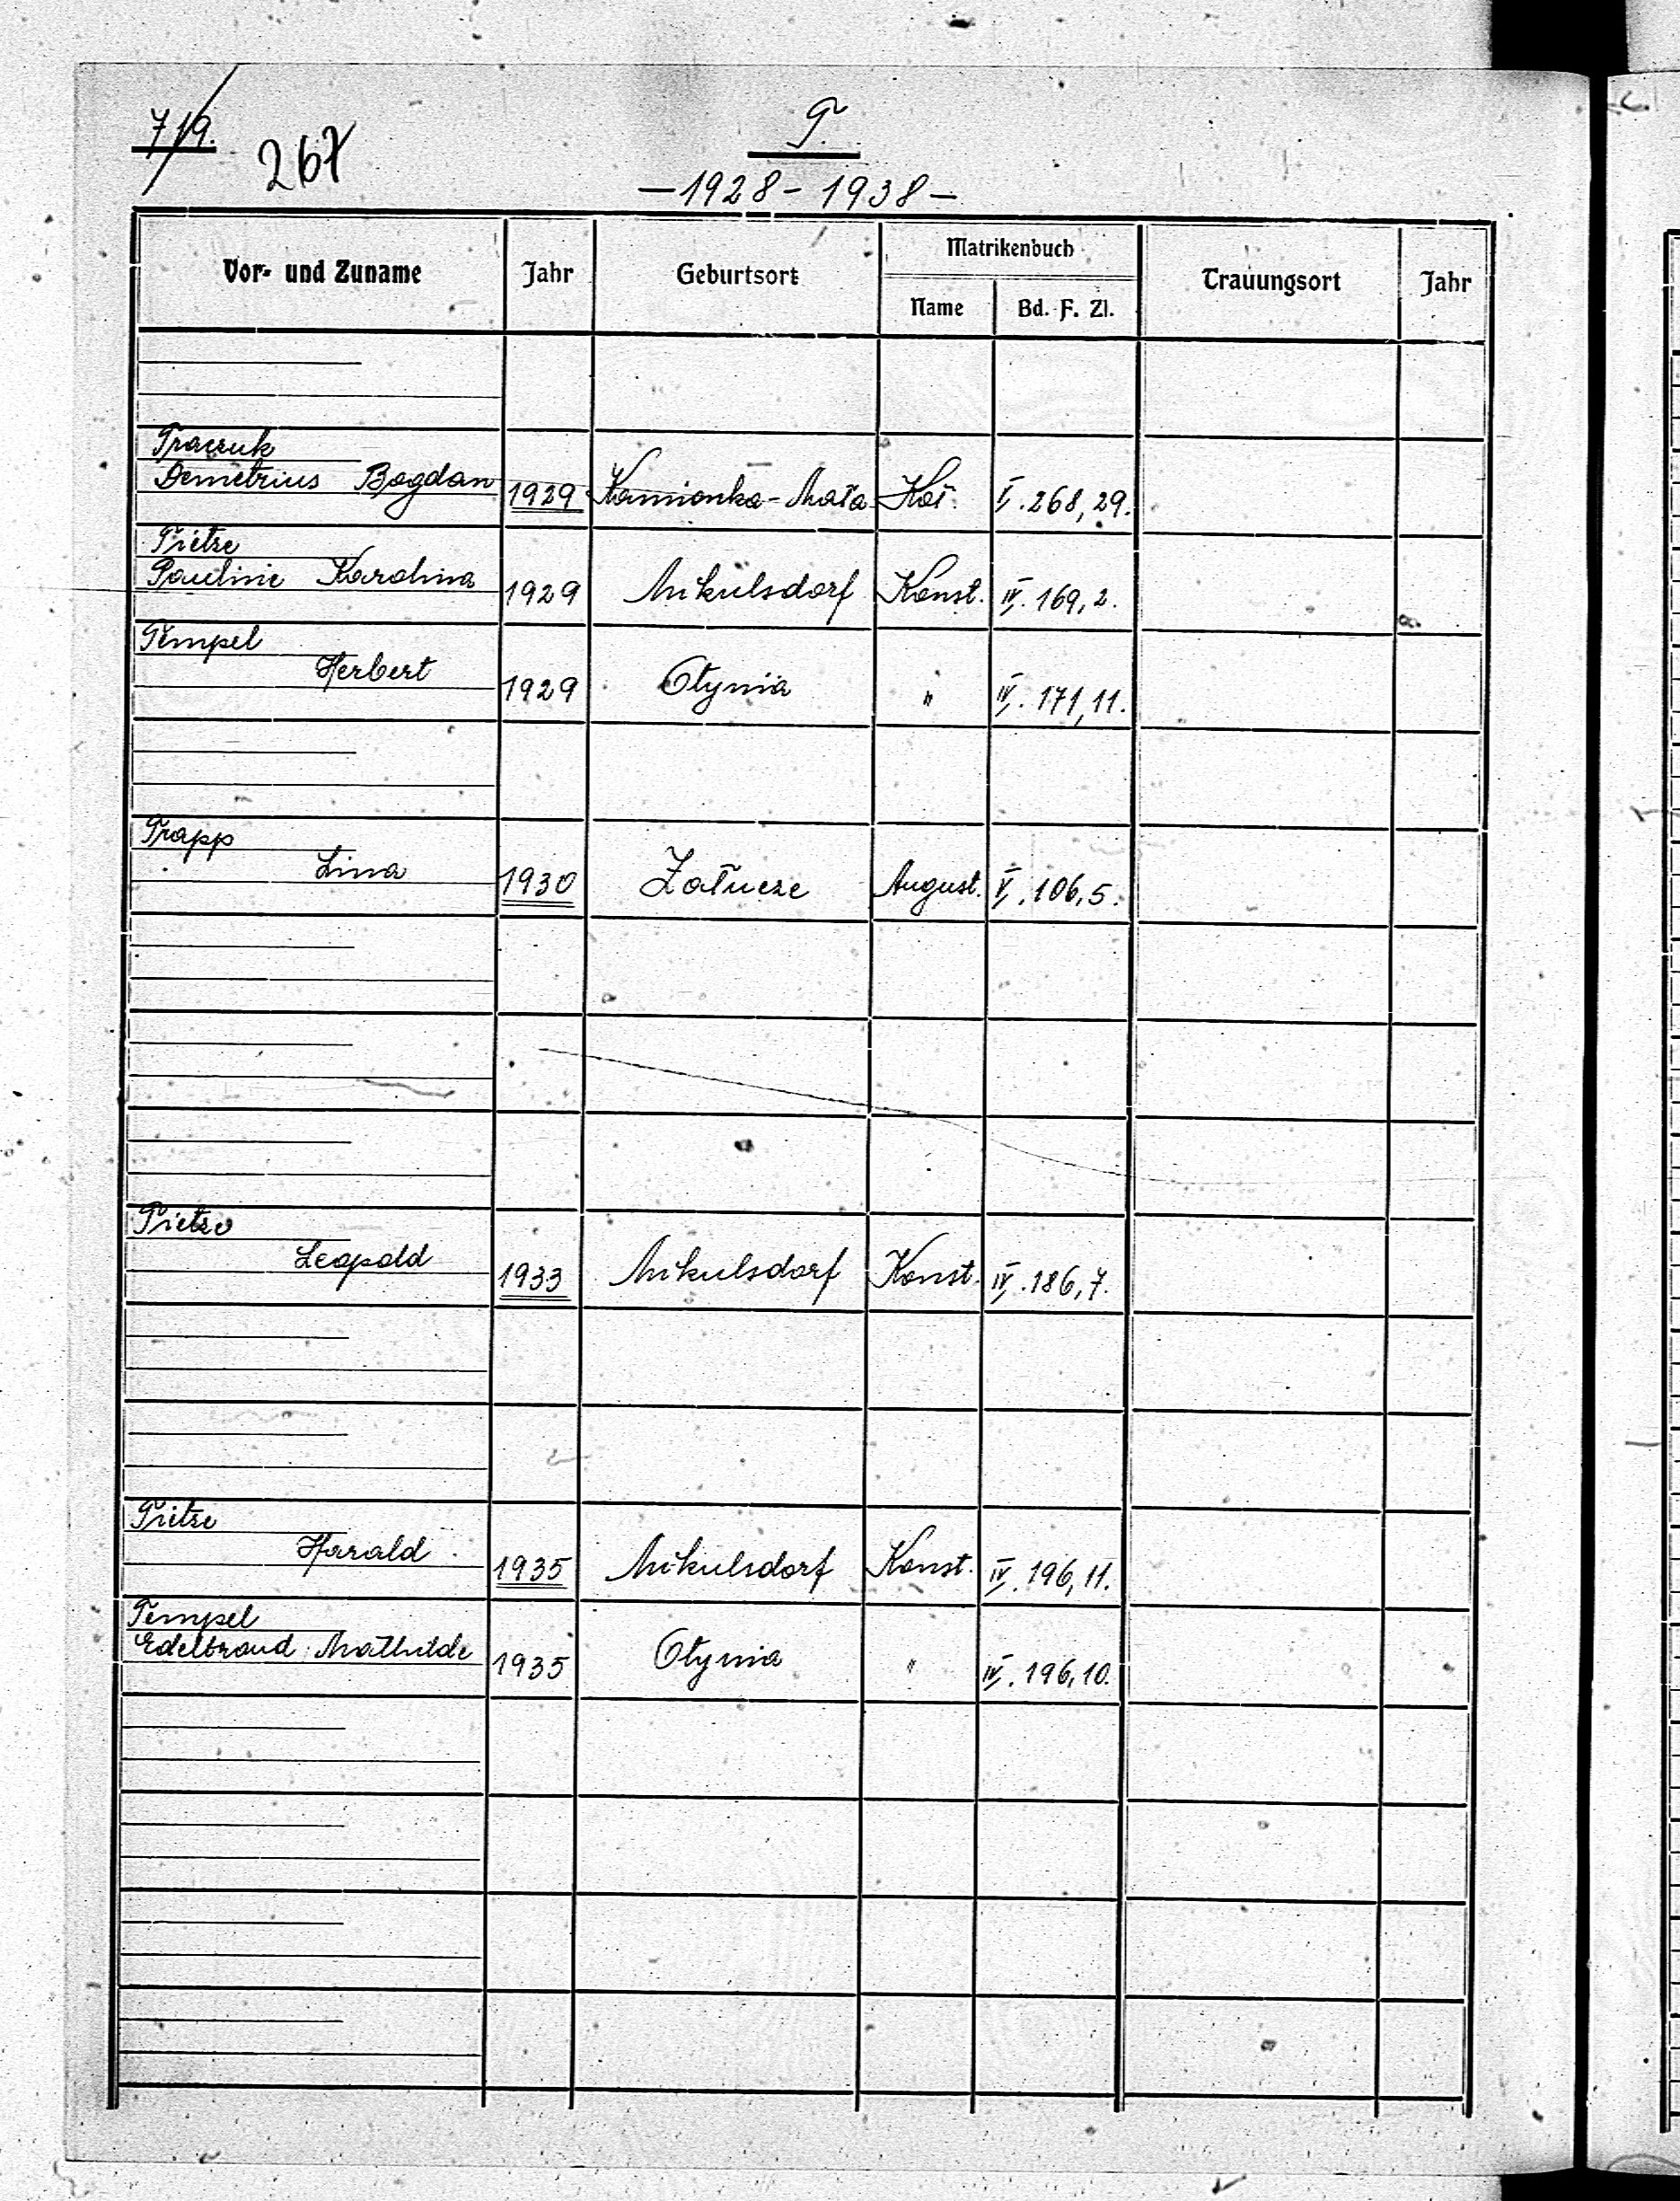 719.
267
T.
—1928-1938—
Vor- und Zuname Jahr Geburtsort Matrikenbuch Trauungsort Jahr
Name Bd. F. Zl.
Traczuk
Demetrius Bogdan 1929 Kamionka-Mała Koł. V. 268, 29.
Tietze
Pauline Karolina 1929 Mikulsdorf Konst. IV. 169, 2.
Tempel
Herbert 1929 Otynia " IV. 171, 11.
Trapp
Lina 1930 Załucze August. V. 106, 5.
Tietze
Leopold 1933 Mikulsdorf Konst. IV. 186, 7.
Tietze
Harald 1935 Mikulsdorf Konst. IV. 196, 11.
Tempel
Edeltraud Mathilde 1935 Otynia " IV. 196, 10.